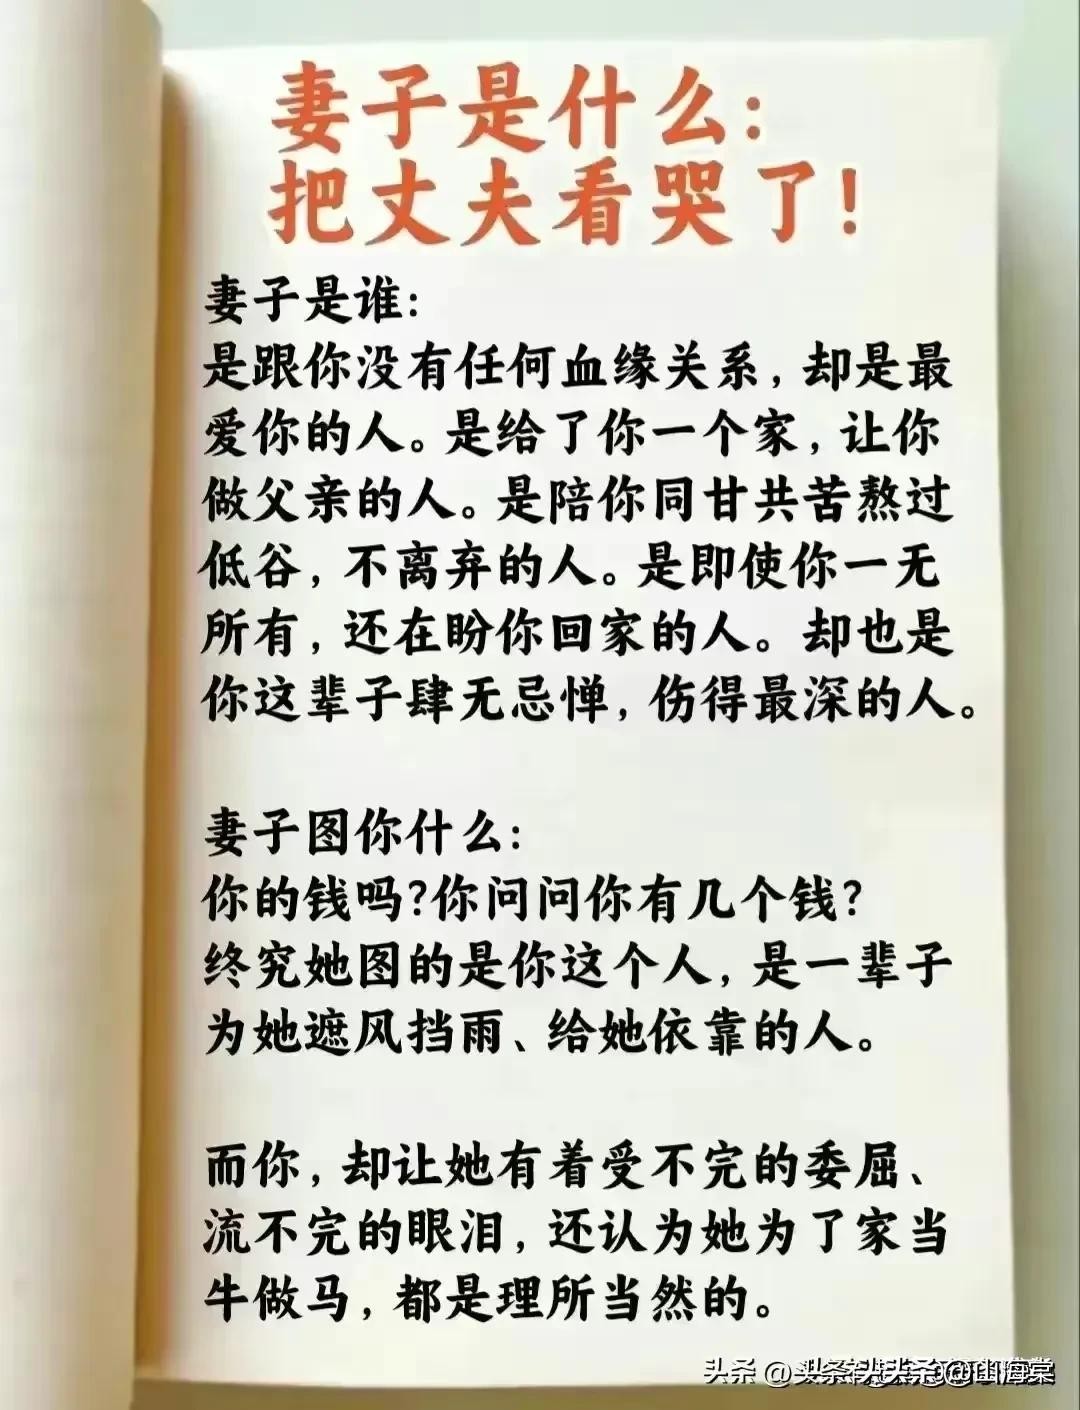 妻子是什么：
把丈夫看哭了！
妻子是谁：
是跟你没有任何血缘关系，却是最
爱你的人。是给了你一个家，让你
做父亲的人。是陪你同甘共苦熬过
低谷，不离弃的人。是即使你一无
所有，还在盼你回家的人。却也是
你这辈子肆无忌惮，伤得最深的人。
妻子图你什么：
你的钱吗？你问问你有几个钱？
终究她图的是你这个人，是一辈子
为她遮风挡雨、给她依靠的人。
而你，却让她有着受不完的委屈、
流不完的眼泪，还认为她为了家当
牛做马，都是理所当然的。
头条 @头条 @山海棠